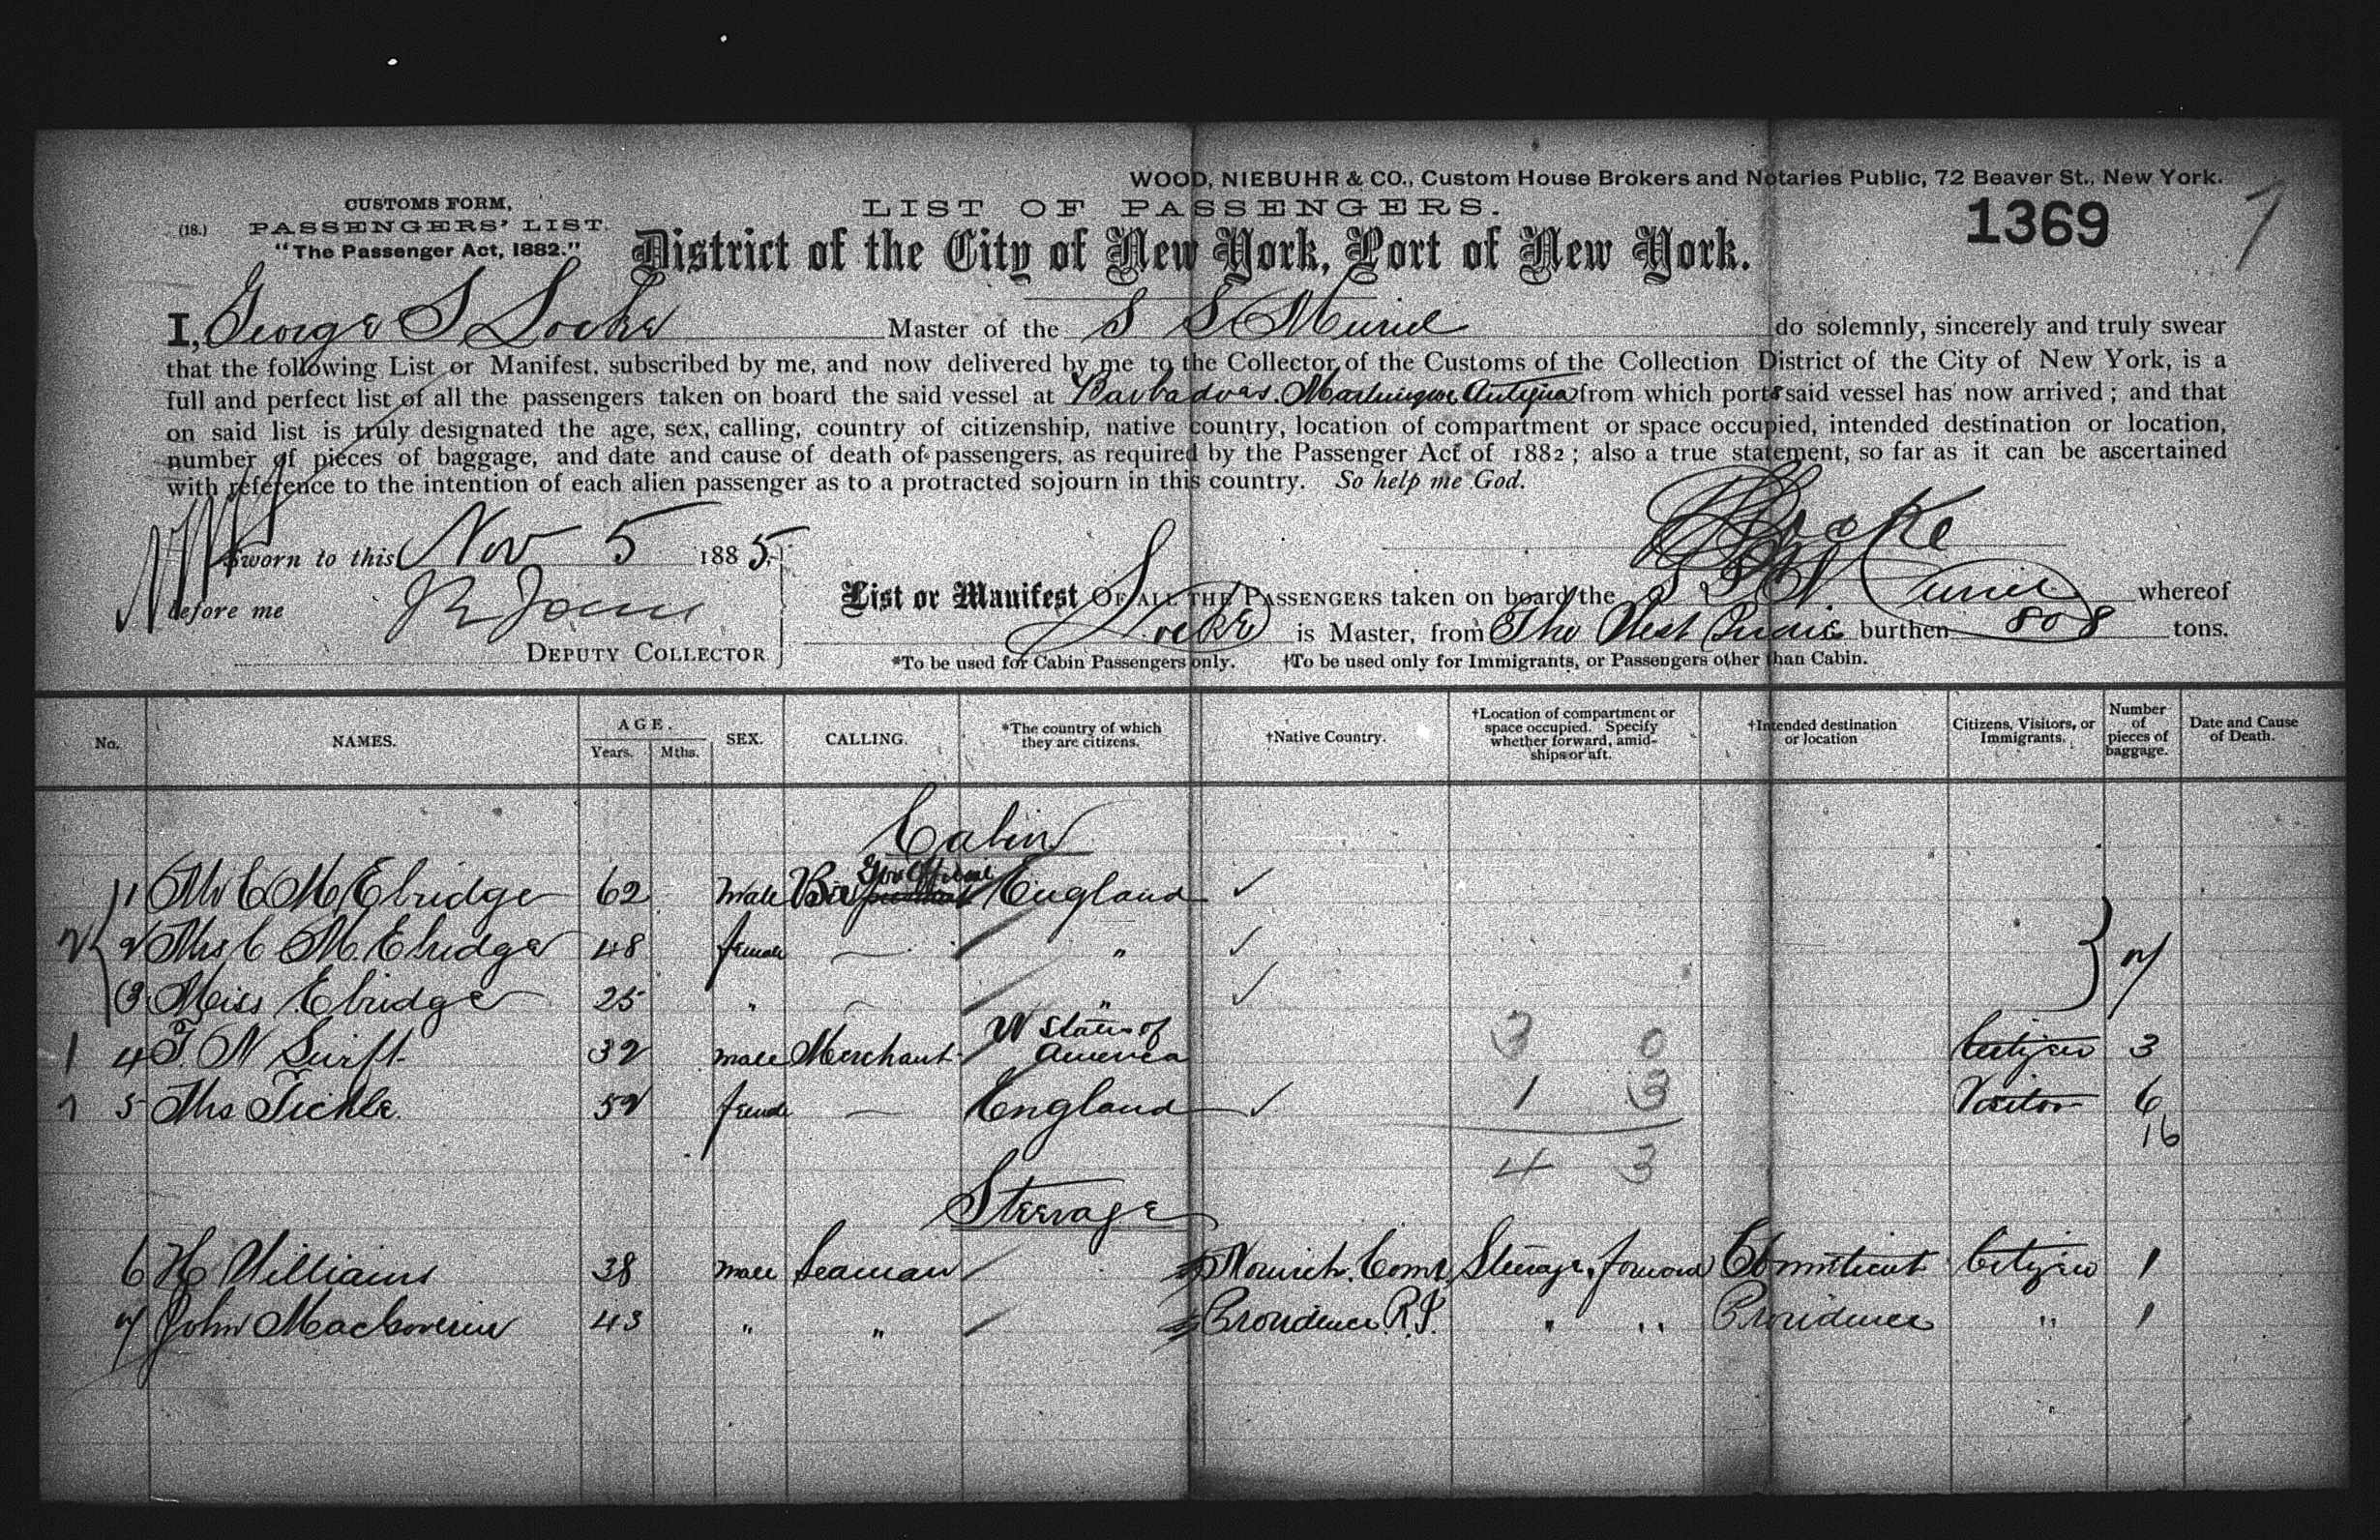 WOOD, NIEBUHR & CO., Custom House Brokers and Notaries Public, 72 Beaver St., New York.
CUSTOMS FORM,
(18.) PASSENGERS' LIST.
"The Passenger Act, 1882."
LIST OF PASSENGERS.
1369
District of the City of New York, Port of New York.
I, George S Locke Master of the S S Muriel do solemnly, sincerely and truly swear
that the following List or Manifest, subscribed by me, and now delivered by me to the Collector of the Customs of the Collection District of the City of New York, is a
full and perfect list of all the passengers taken on board the said vessel at Barbadoes. Martinique Antigua from which ports said vessel has now arrived; and that
on said list is truly designated the age, sex, calling, country of citizenship, native country, location of compartment or space occupied, intended destination or location,
number of pieces of baggage, and date and cause of death of passengers, as required by the Passenger Act of 1882; also a true statement, so far as it can be ascertained
with reference to the intention of each alien passenger as to a protracted sojourn in this country. So help me God.
Locke
Sworn to this Nov 5 1885
Before me
DEPUTY COLLECTOR
List or Manifest OF ALL THE PASSENGERS taken on board the S S Muriel whereof
Locke is Master, from The West Indies burthen 808 tons.
*To be used for Cabin Passengers only. †To be used only for Immigrants, or Passengers other than Cabin.
No. NAMES. AGE. Years. Mths. SEX. CALLING. *The country of which they are citizens. †Native Country. †Location of compartment or space occupied. Specify whether forward, amidships or aft. †Intended destination or location Citizens, Visitors, or Immigrants. Number of pieces of baggage. Date and Cause of Death.
Cabin
Gov Official
1 Mr C M Ebridge 62 male England
2 Mrs C M. Ebridge 48 female — "
3 Miss Ebridge 25 " — " 7
4 F. N Swift 32 male Merchant U States of America 3 0 Citizen 3
5 Mrs Tickle 52 female — England 1 3 Visitor 6
16
4 3
Steerage
6 H Williams 38 male Seaman Norwich. Conn Steerage, forward Connecticut Citizen 1
7 John 43 " " Providence R.I. " " Providence " 1